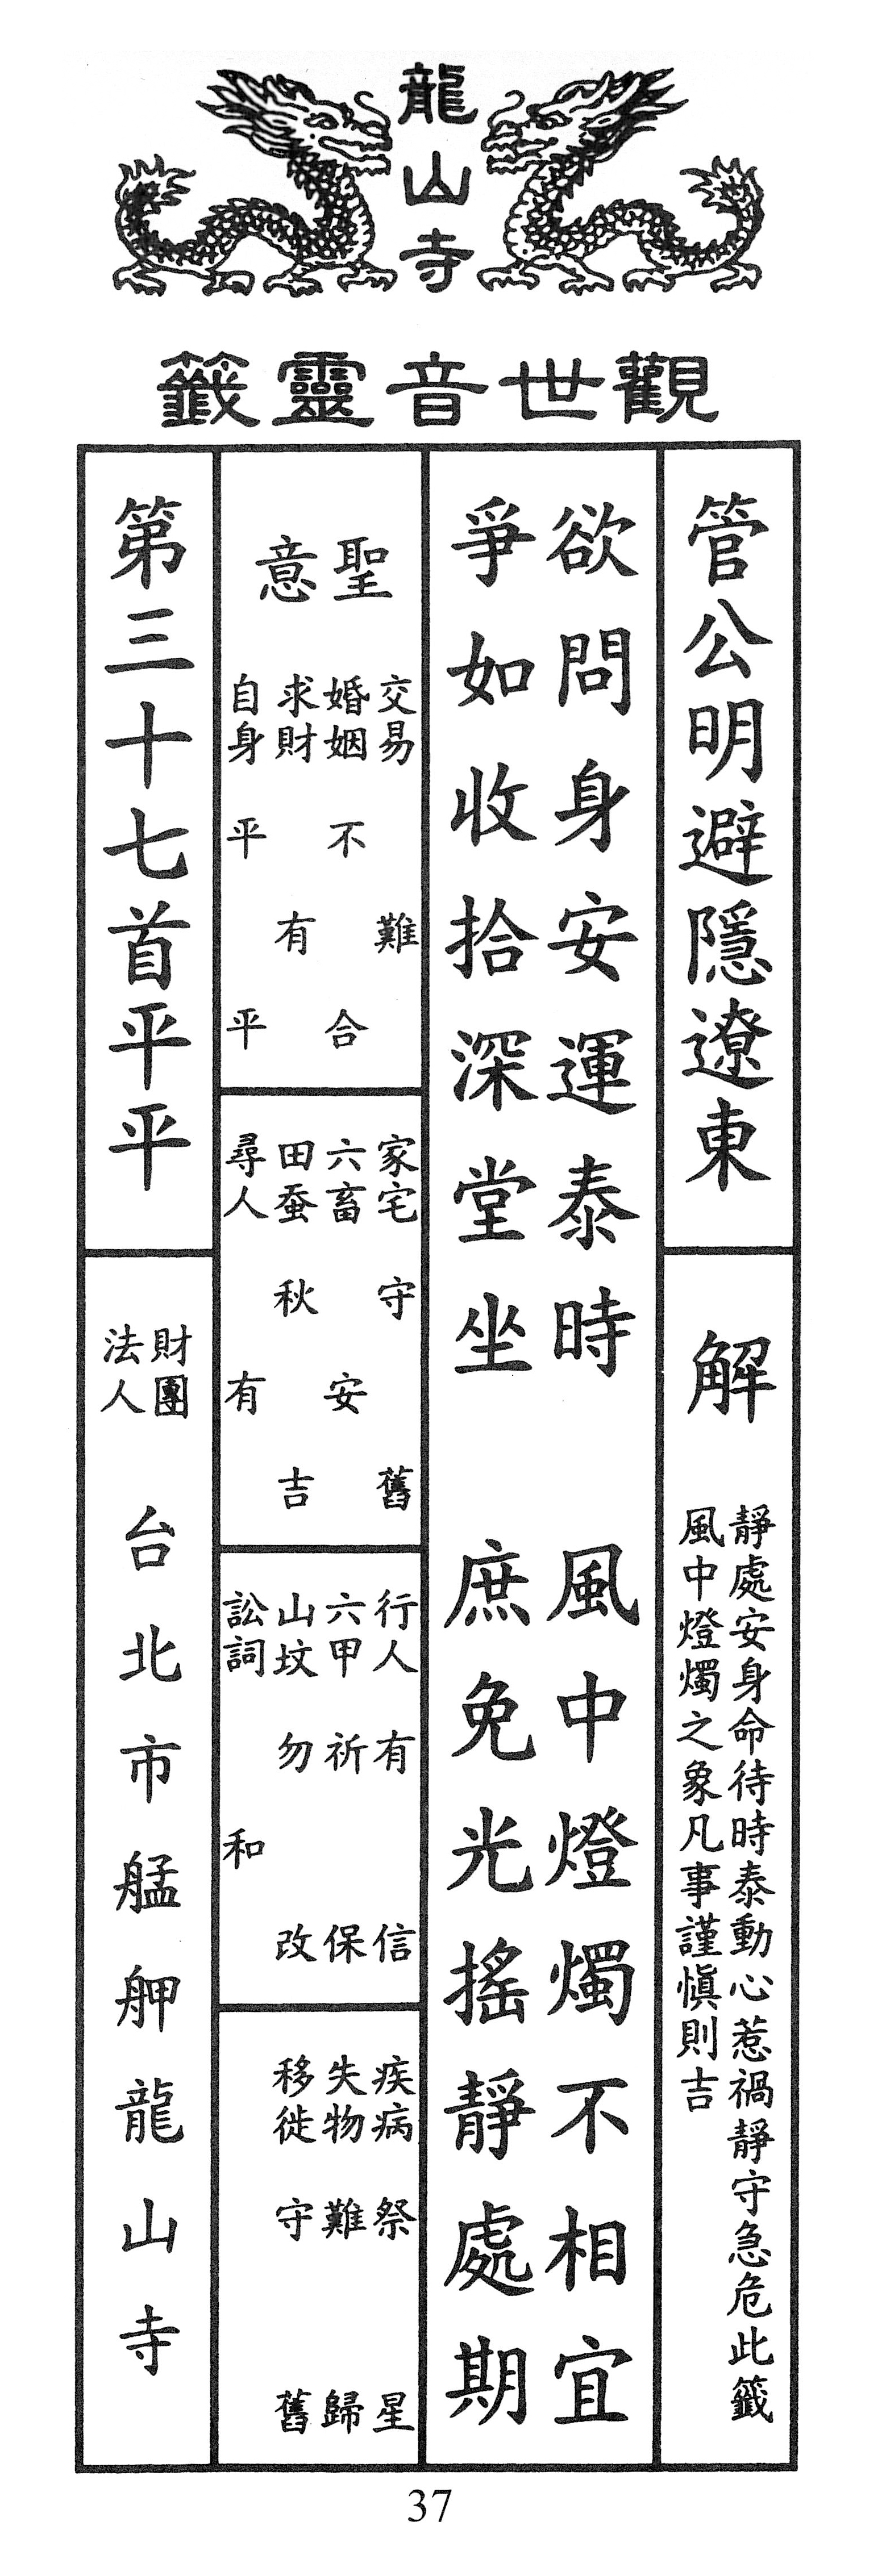 龍山寺
觀世音靈籤
管公明避隱遼東
解
靜處安身命待時泰動心惹禍靜守急危此籤
風中燈燭之象凡事謹慎則吉
欲問身安運泰時 風中燈燭不相宜
爭如收拾深堂坐 庶免光搖靜處期
聖意
交易 難
婚姻 不合
求財 有
自身 平平
家宅 守舊
六畜 安
田蚕 秋吉
尋人 有
行人 有信
六甲 祈保
山坟 勿改
訟詞 和
疾病 祭星
失物 難歸
移徙 守舊
第三十七首平平
財團法人
台北市艋舺龍山寺
37